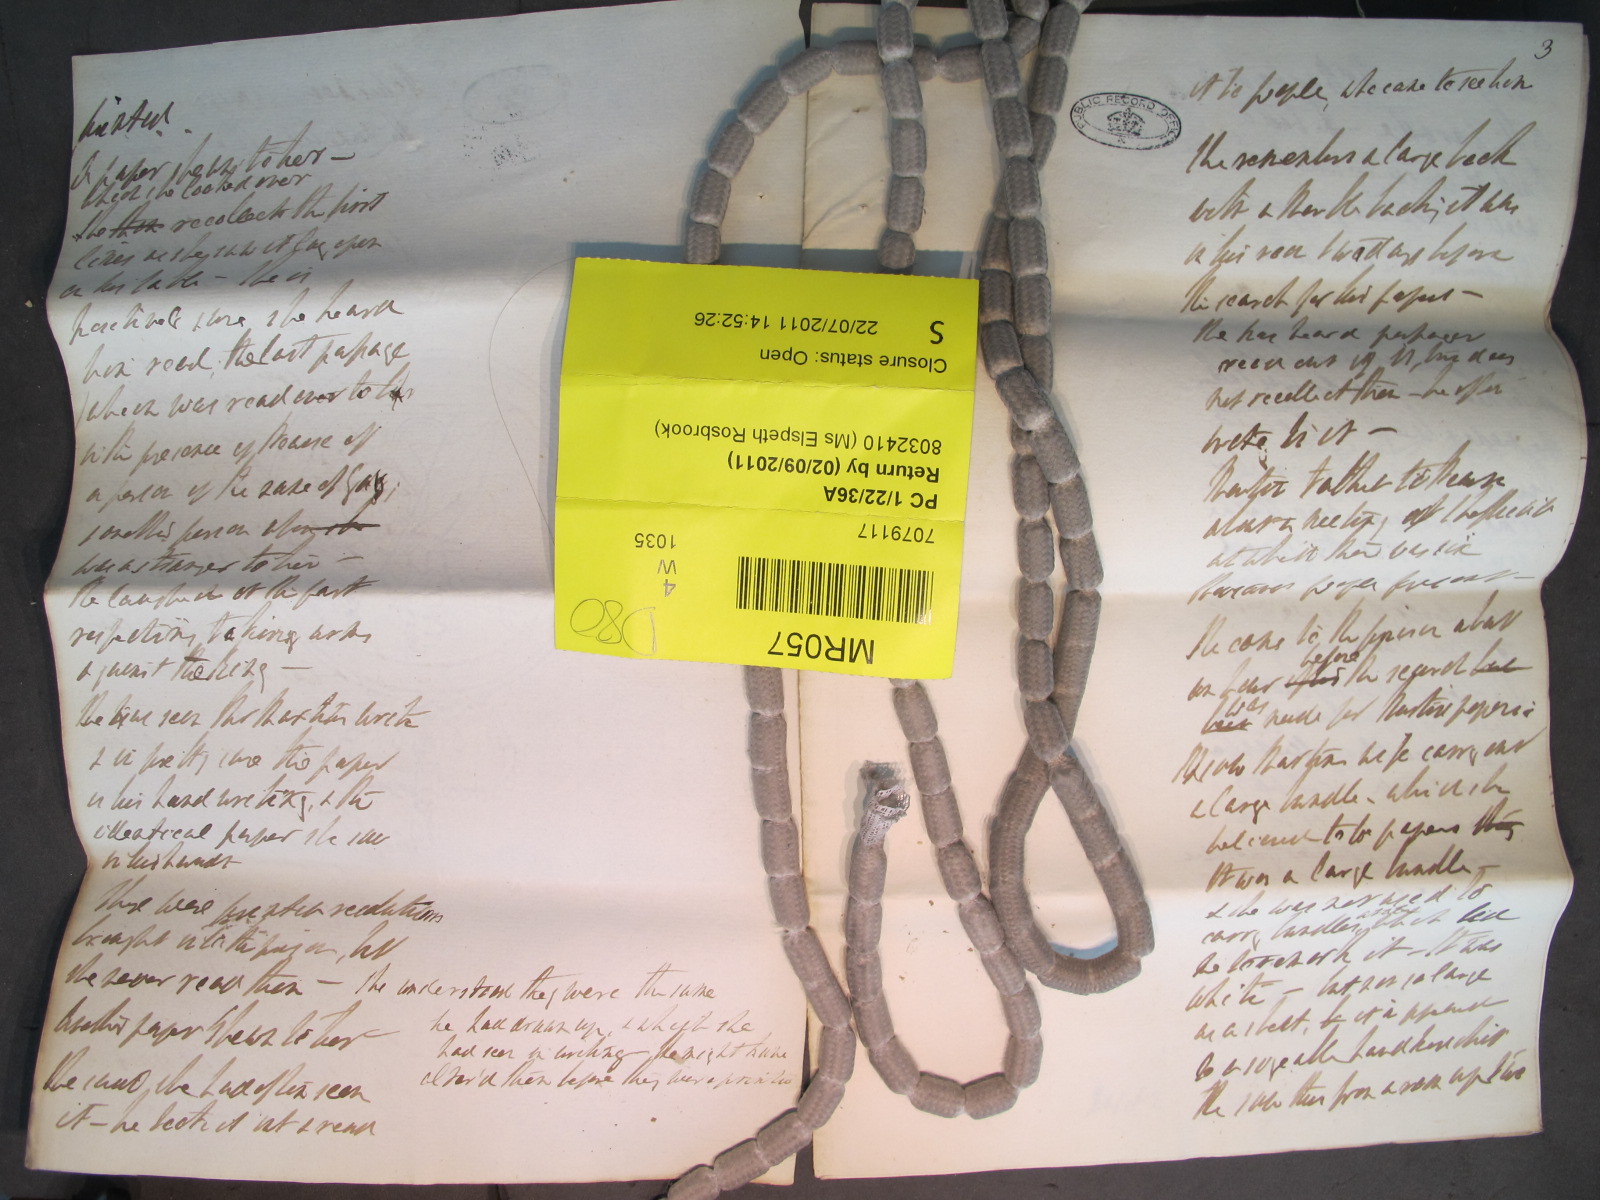 printed.
A paper shewn to her —
which she looked over
She recollects the first
lines as she saw it lay open
on his table — She is
positively sure, she heard
him read, the last passage
which was read over to her
in the presence of
a person of the name of Gay;
another person also
was a stranger to her —
He laughed at the part
respecting taking arms
against the King —
She has seen Mr Martin write
& is pretty sure the paper
is his hand writing, & the
identical paper she saw
in his hands
There were printed resolutions
brought into the prison, but
She never read them — She understood they were the same
he had drawn up, & which she
had seen in writing — he might have
alter'd them before they were printed
Another paper shewn to her
She said, she had often seen
it — he took it out & read
3
it to people, who came to see him
PUBLIC RECORD OFFICE
She remembers a large book
with a Marble back; it was
in his room two days before
the search for his papers —
She has heard passages
read out of it, but does
not recollect them — he often
wrote in it —
Martin talked to
about a meeting at Sheffield
at which there was six
thousand people present —
She came to the prison about
before
an hour the search
was
made for Martin's papers:
She saw Martin's wife carry out
a large bundle, which she
believed to be papers
It was a large bundle —
& she was not used to
carry bundles
white — but not so large
as a sheet, it appeared
to be a sizeable handkerchief
She saw this from a room up
MR057
7079117
PC 1/22/36A
Return by (02/09/2011)
8032410 (Ms Elspeth Rosbrook)
Closure status: Open
22/07/2011 14:52:26
S
4
W
1035
D80